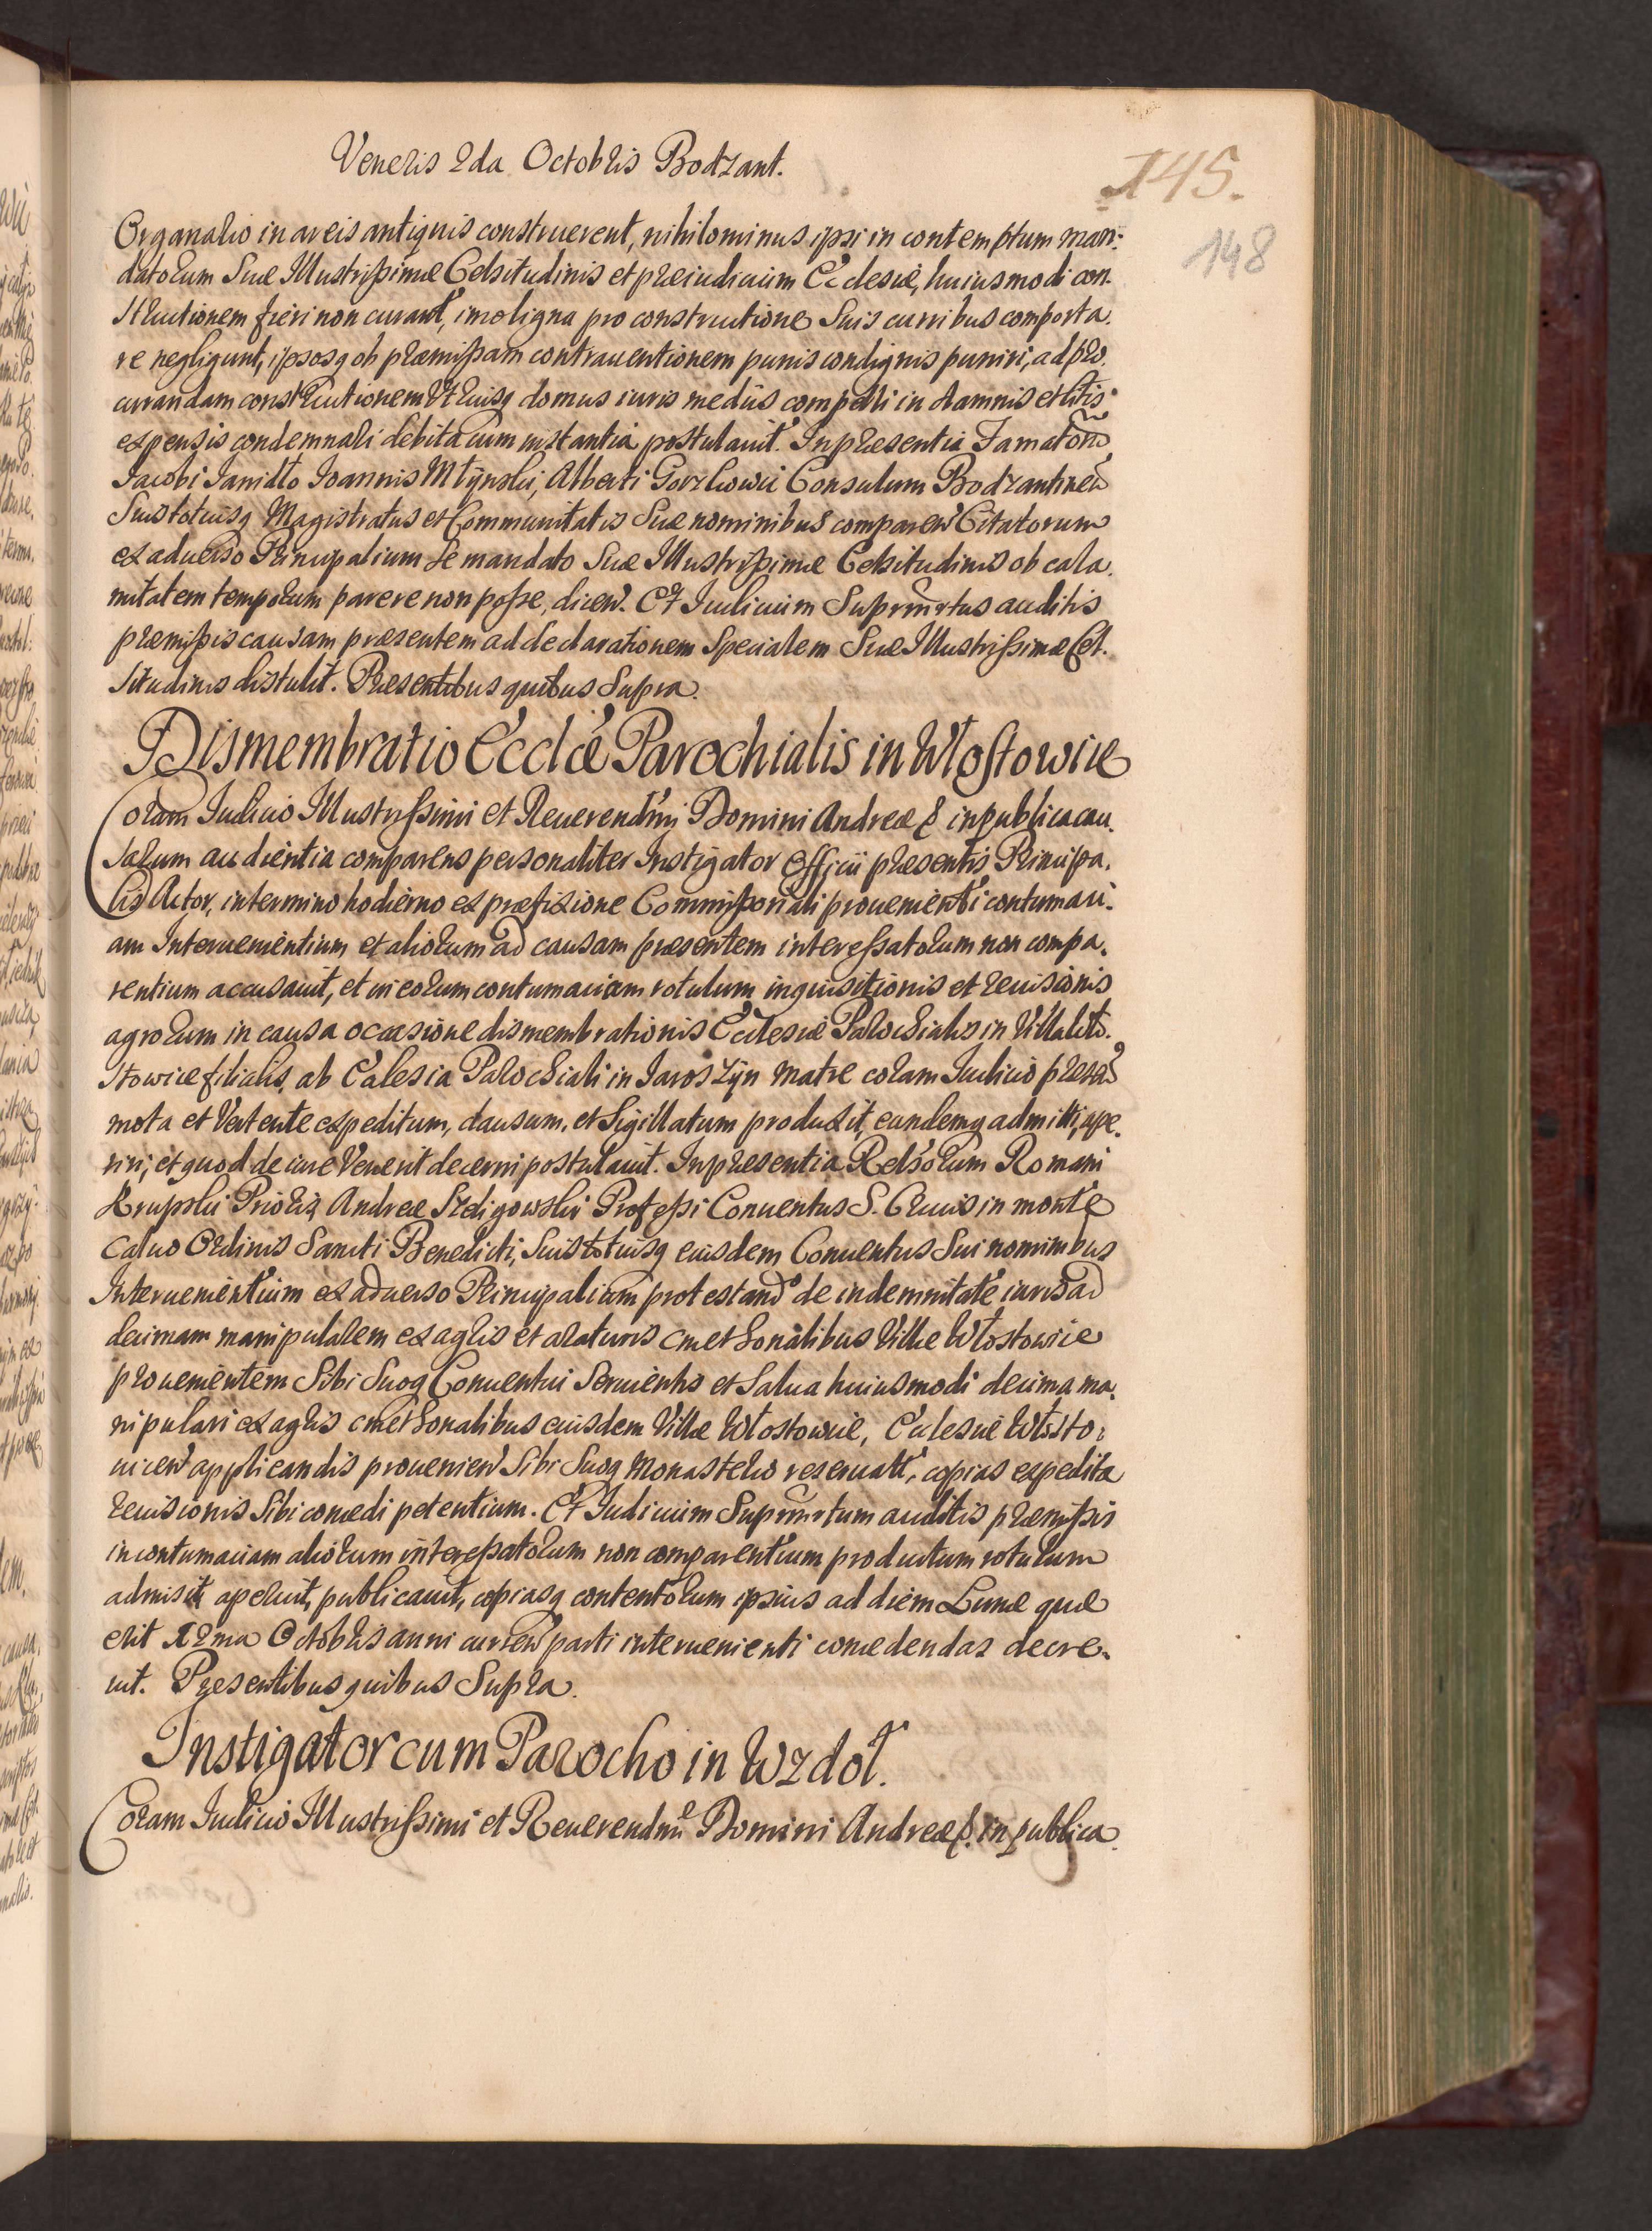 Veneris 2da Octobris Bodzant.
145.
148
Organario in areis antiquis construerent, nihilominus ipsi in contemptum man:
datorum Suæ Illustrissimæ Celsitudinis et præiudicium Ecclesiæ, huiusmodi con.
structionem fieri non curant, imo ligna pro constructione Suis curribus comporta.
re negligunt, ipsosq ob præmissam contrauentionem pænis condignis puniri, ad pro.
curandam constructionem Utriusq domus iuris mediis compelli in damnis et litis
expensis condemnari debita cum instantia postulauit. In præsentia Famator
Jacobi Janidło Joannis Młynski, Alberti Gorzkowic Consulum Bodzantinen
Suis totiusq Magistratus et Communitatis Suæ nominibus comparen Citatorum
ex aduerso Principalium se mandato Suæ Illustrissimæ Celsitudinis ob cala.
mitatem temporum parere non posse, dicen. Et Iudicium Suprmrtus auditis
præmissis causam præsentem ad declarationem Specialem Suæ Illustrissimæ Cel.
situdinis distulit. Præsentibus quibus Supra.
Dismembratio Ecclæ Parochialis in Włostowice
Coram Iudicio Illustrissimi et Reuerendmi Domini Andreæ & in publica cau.
sarum audientia comparens personaliter Instigator Officii præsentis Principa.
lis Actor, in termino hodierno ex præfixione Commissoriali proueniente contumaci.
am Interuenientium et aliorum ad causam præsentem interessatorum non compa.
rentium accusauit, et in eorum contumaciam rotulum inquisitionis et reuisionis
agrorum in causa occasione dismembrationis Ecclesiæ Parochialis in Villa Wło.
stowice filialis, ab Ecclesia Parochiali in Jaroszyn matre coram Iudicio præsen
mota et Vertente expeditum, clausum, et Sigillatum produxit, eundemq admitti, ape.
riri, et quod de iure Venerit decerni postulauit. In præsentia Relsorum Romani
Krupski Prioris Andreæ Szeligowski Professi Conuentus S. Crucis in monte
Caluo Ordinis Sancti Benedicti, Suis totiusq eiusdem Conuentus Sui nominibus
Interuenientium ex aduerso Principalium protestand de indemnitate iuris ad
decimam manipularem ex agris et araturis cmethonalibus Villæ Włostowice
prouenientem Sibi Suoq Conuentui Seruientis et Salua huiusmodi decima ma.
nipulari ex agris cmethonalibus eiusdem Villæ Włostowice, Ecclesiæ Włosto:
uicen applicandis prouenien Sibi Suoq Monasterio reseruatt, copias expeditæ
reuisionis Sibi concedi petentium. Et Iudicium Suprmrtum auditis præmissis
in contumaciam aliorum interessatorum non comparentium productum rotulum
admisit, aperuit, publicauit, copiasq contentorum ipsius ad diem Lunæ quæ
erit 12ma Octobris anni curren parti interuenienti concedendas decre.
uit. Præsentibus quibus Supra.
Instigator cum Parocho in Wzdoł.
Coram Iudicio Illustrissimi et Reuerendmi Domini Andreæ &. in publica